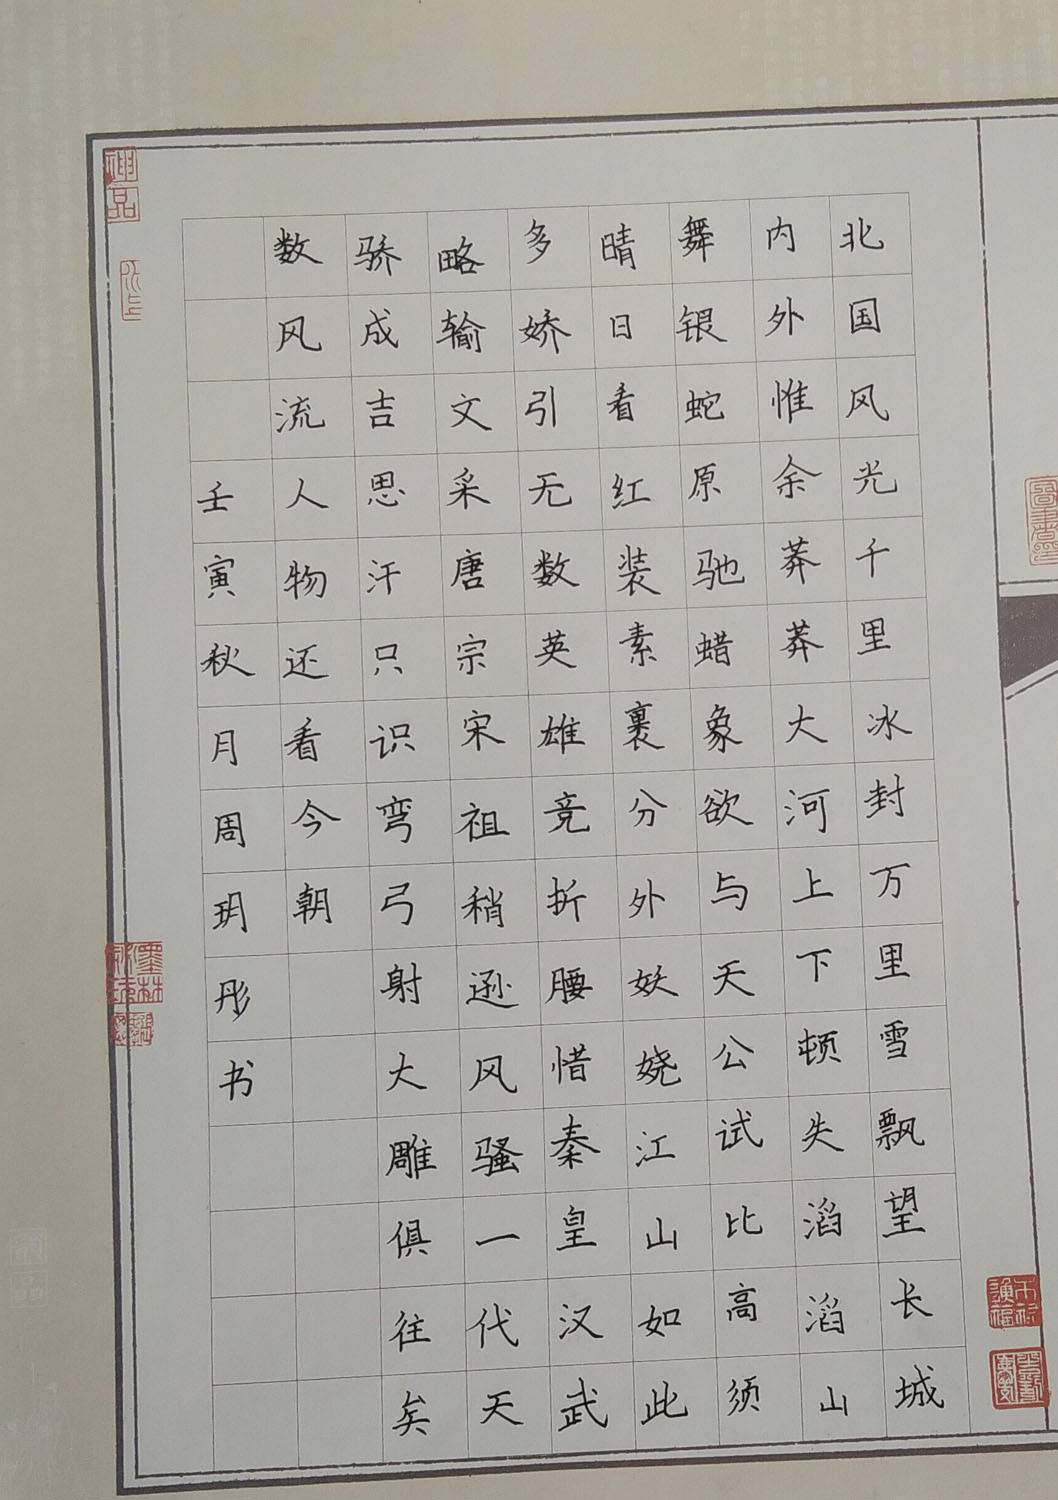 北国风光千里冰封万里雪飘望长城
内外惟余莽莽大河上下顿失滔滔山
舞银蛇原驰蜡象欲与天公试比高须
晴日看红装素裹分外妖娆江山如此
多娇引无数英雄竞折腰惜秦皇汉武
略输文采唐宗宋祖稍逊风骚一代天
骄成吉思汗只识弯弓射大雕俱往矣
数风流人物还看今朝
壬寅秋月周玥彤书
神品